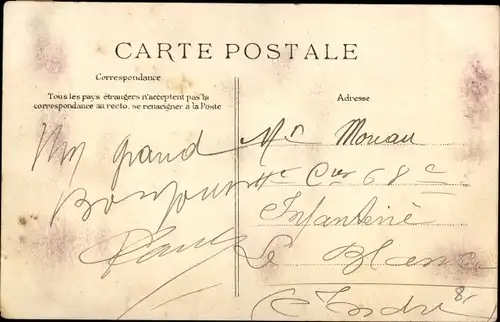 CARTE POSTALE
Correspondance
Tous les pays étrangers n'acceptent pas la
correspondance au recto, se renseigner à la Poste
Adresse
Un grand
Bonjour
Mr Moreau
Cie 68e
Infanterie
Le Blanc
Indre